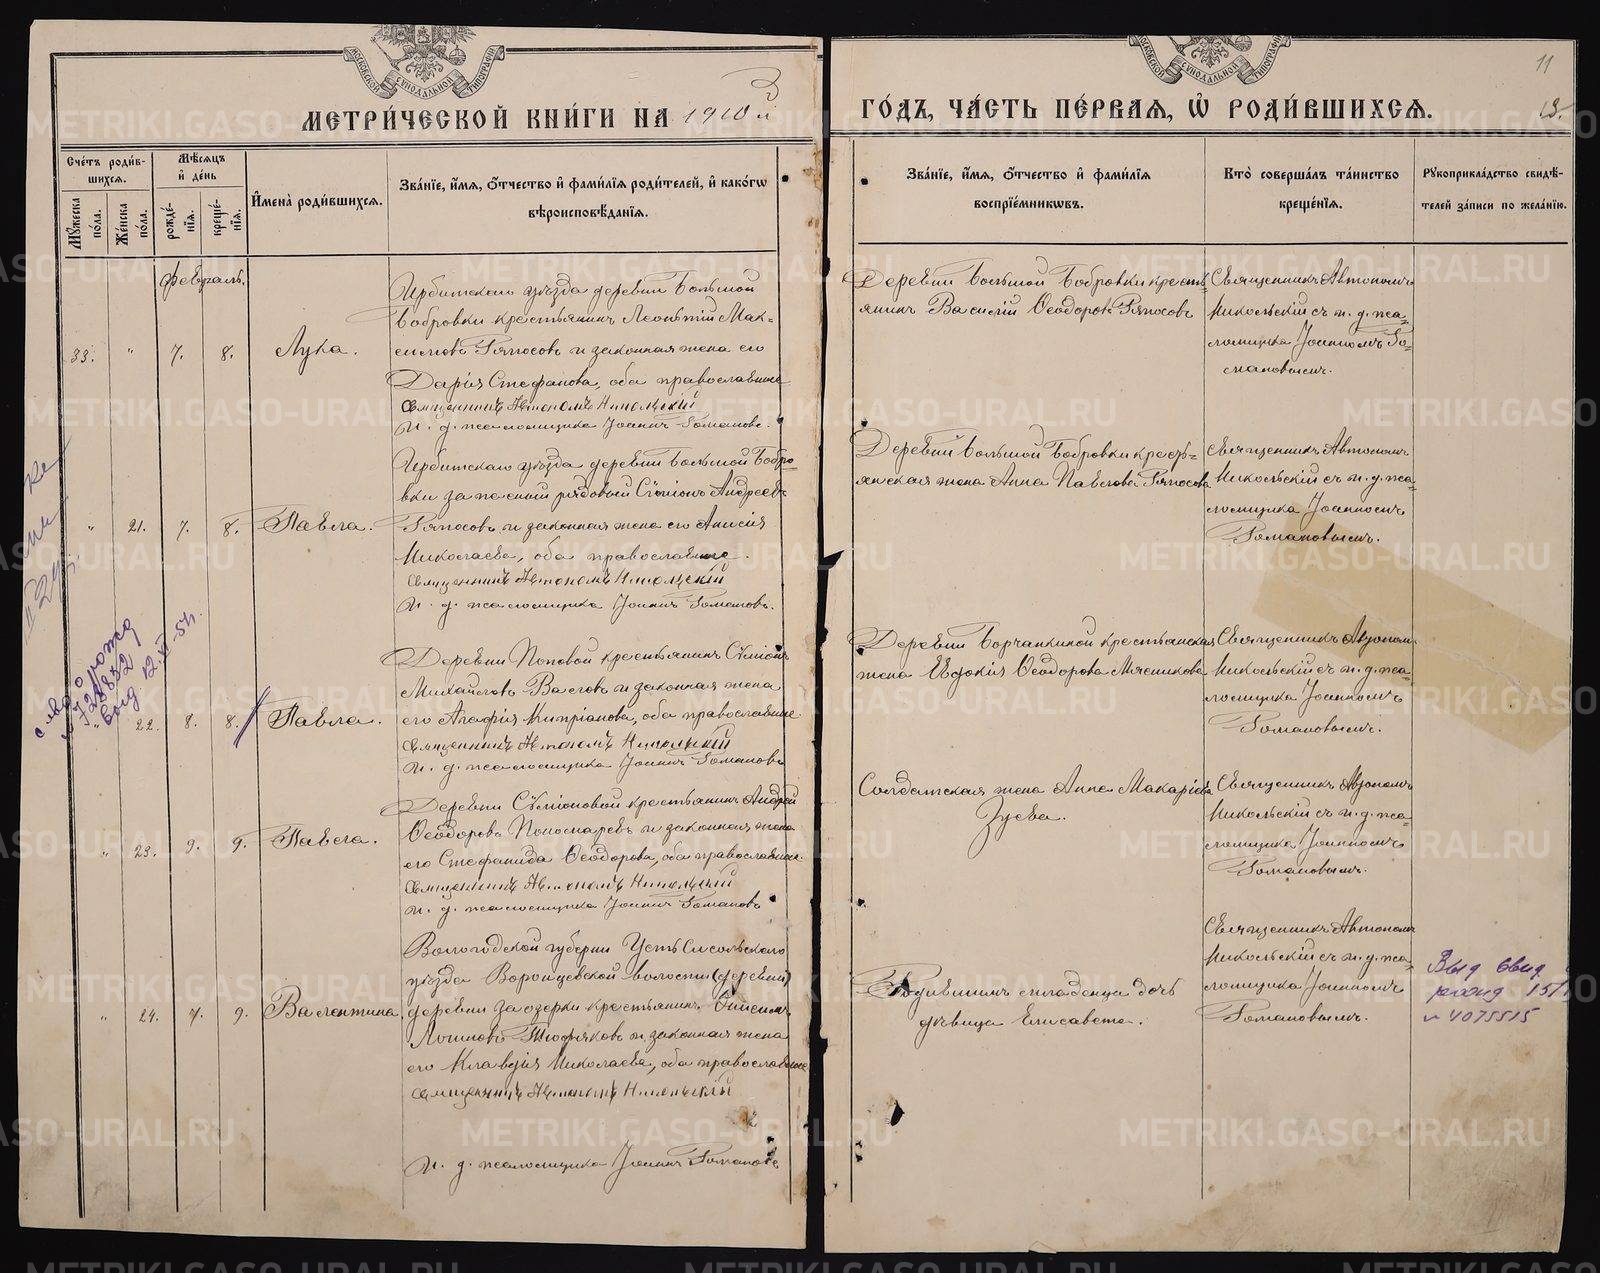 МЕТРИ́ЧЕСКОЙ КНИ́ГИ НА 1910 й
Сче́тъ роди́в-
шихся.
Мѣ́сяцъ
и҆ де́нь
Му́жеска
по́ла.
Же́нска
по́ла.
рожде́-
нїя.
креще́-
нїя.
И҆мена̀ роди́вшихся.
Зва́нїе, и҆́мя, ѻ҆́тчество и҆ фами́лїя роди́телей, и҆ како́гѡ
вѣроисповѣ́данїя.
Февраль.
33. " 7. 8. Лука.
Ирбитскаго уѣзда деревни Большой
Бобровки крестьянинъ Леонтій Мак-
симовъ Ряпосовъ и законная жена его
Дарія Стефанова, оба православные
Священникъ Автономъ Никольскій
И. д. псаломщика Іоаннъ Романовъ.
" 21. 7. 8. Павла.
Ирбитскаго уѣзда деревни Большой Бобро-
вки запасный рядовый Сѵмеонъ Андреевъ
Ряпосовъ и законная жена его Анисія
Николаева, оба православные.
Священникъ Автономъ Никольскій
И. д. псаломщика Іоаннъ Романовъ.
" 22. 8. 8. Павла.
Деревни Поповой крестьянинъ Сѵмеонъ
Михайловъ и законная жена
его Агафія Кипріанова, оба православные
Священникъ Автономъ Никольскій
И. д. псаломщика Іоаннъ Романовъ
" 23. 9. 9. Павла.
Деревни Сѵмеоновой крестьянинъ Андрей
Ѳеодоровъ Пономаревъ и законная жена
его Стефанида Ѳеодорова, оба православные.
Священникъ Автономъ Никольскій
И. д. псаломщика Іоаннъ Романовъ
" 24. 7. 9. Валентина.
Вологодской губерніи Усть Сысольскаго
уѣзда волости (деревни)
деревни Заозерки крестьянинъ
и законная жена
его Клавдія Николаева, оба православные
Священникъ Автономъ Никольскій
И. д. псаломщика Іоаннъ Романовъ
11
13.
ГО́ДЪ, ЧА́СТЬ ПЕ́РВАЯ, Ѡ҆ РОДИ́ВШИХСЯ.
Зва́нїе, и҆́мя, ѻ҆́тчество и҆ фами́лїя
воспрїе́мникѡвъ.
Кто̀ соверша́лъ та́инство
креще́нїя.
Рукоприкла́дство свидѣ́-
телей за́писи по жела́нїю.
Деревни Большой Бобровки кресть-
янинъ Василій Ѳеодоровъ Ряпосовъ
Священникъ Автономъ
Никольскій съ и. д. пса-
ломщика Іоанномъ Ро-
мановымъ.
Деревни Большой Бобровки кресть-
янская жена Анна Павлова Ряпосова
Священникъ Автономъ
Никольскій съ и. д. пса-
ломщика Іоанномъ
Романовымъ.
Деревни Борчаниной крестьянская
жена Евдокія Ѳеодорова Мясникова
Священникъ Автоном.
Никольскій съ и. д. пса-
ломщика Іоанномъ
Романовымъ.
Солдатская жена Анна Макаріева
Зуева.
Священникъ Автономъ
Никольскій съ и. д. пса-
ломщика Іоанномъ
Романовымъ.
Родившимъ младенца дочь
дѣвица Елисавета.
Священникъ Автономъ
Никольскій съ и. д. пса-
ломщика Іоанномъ
Романовымъ.
Выд. свид.
№ 4075515
METRIKI.GASO-URAL.RU